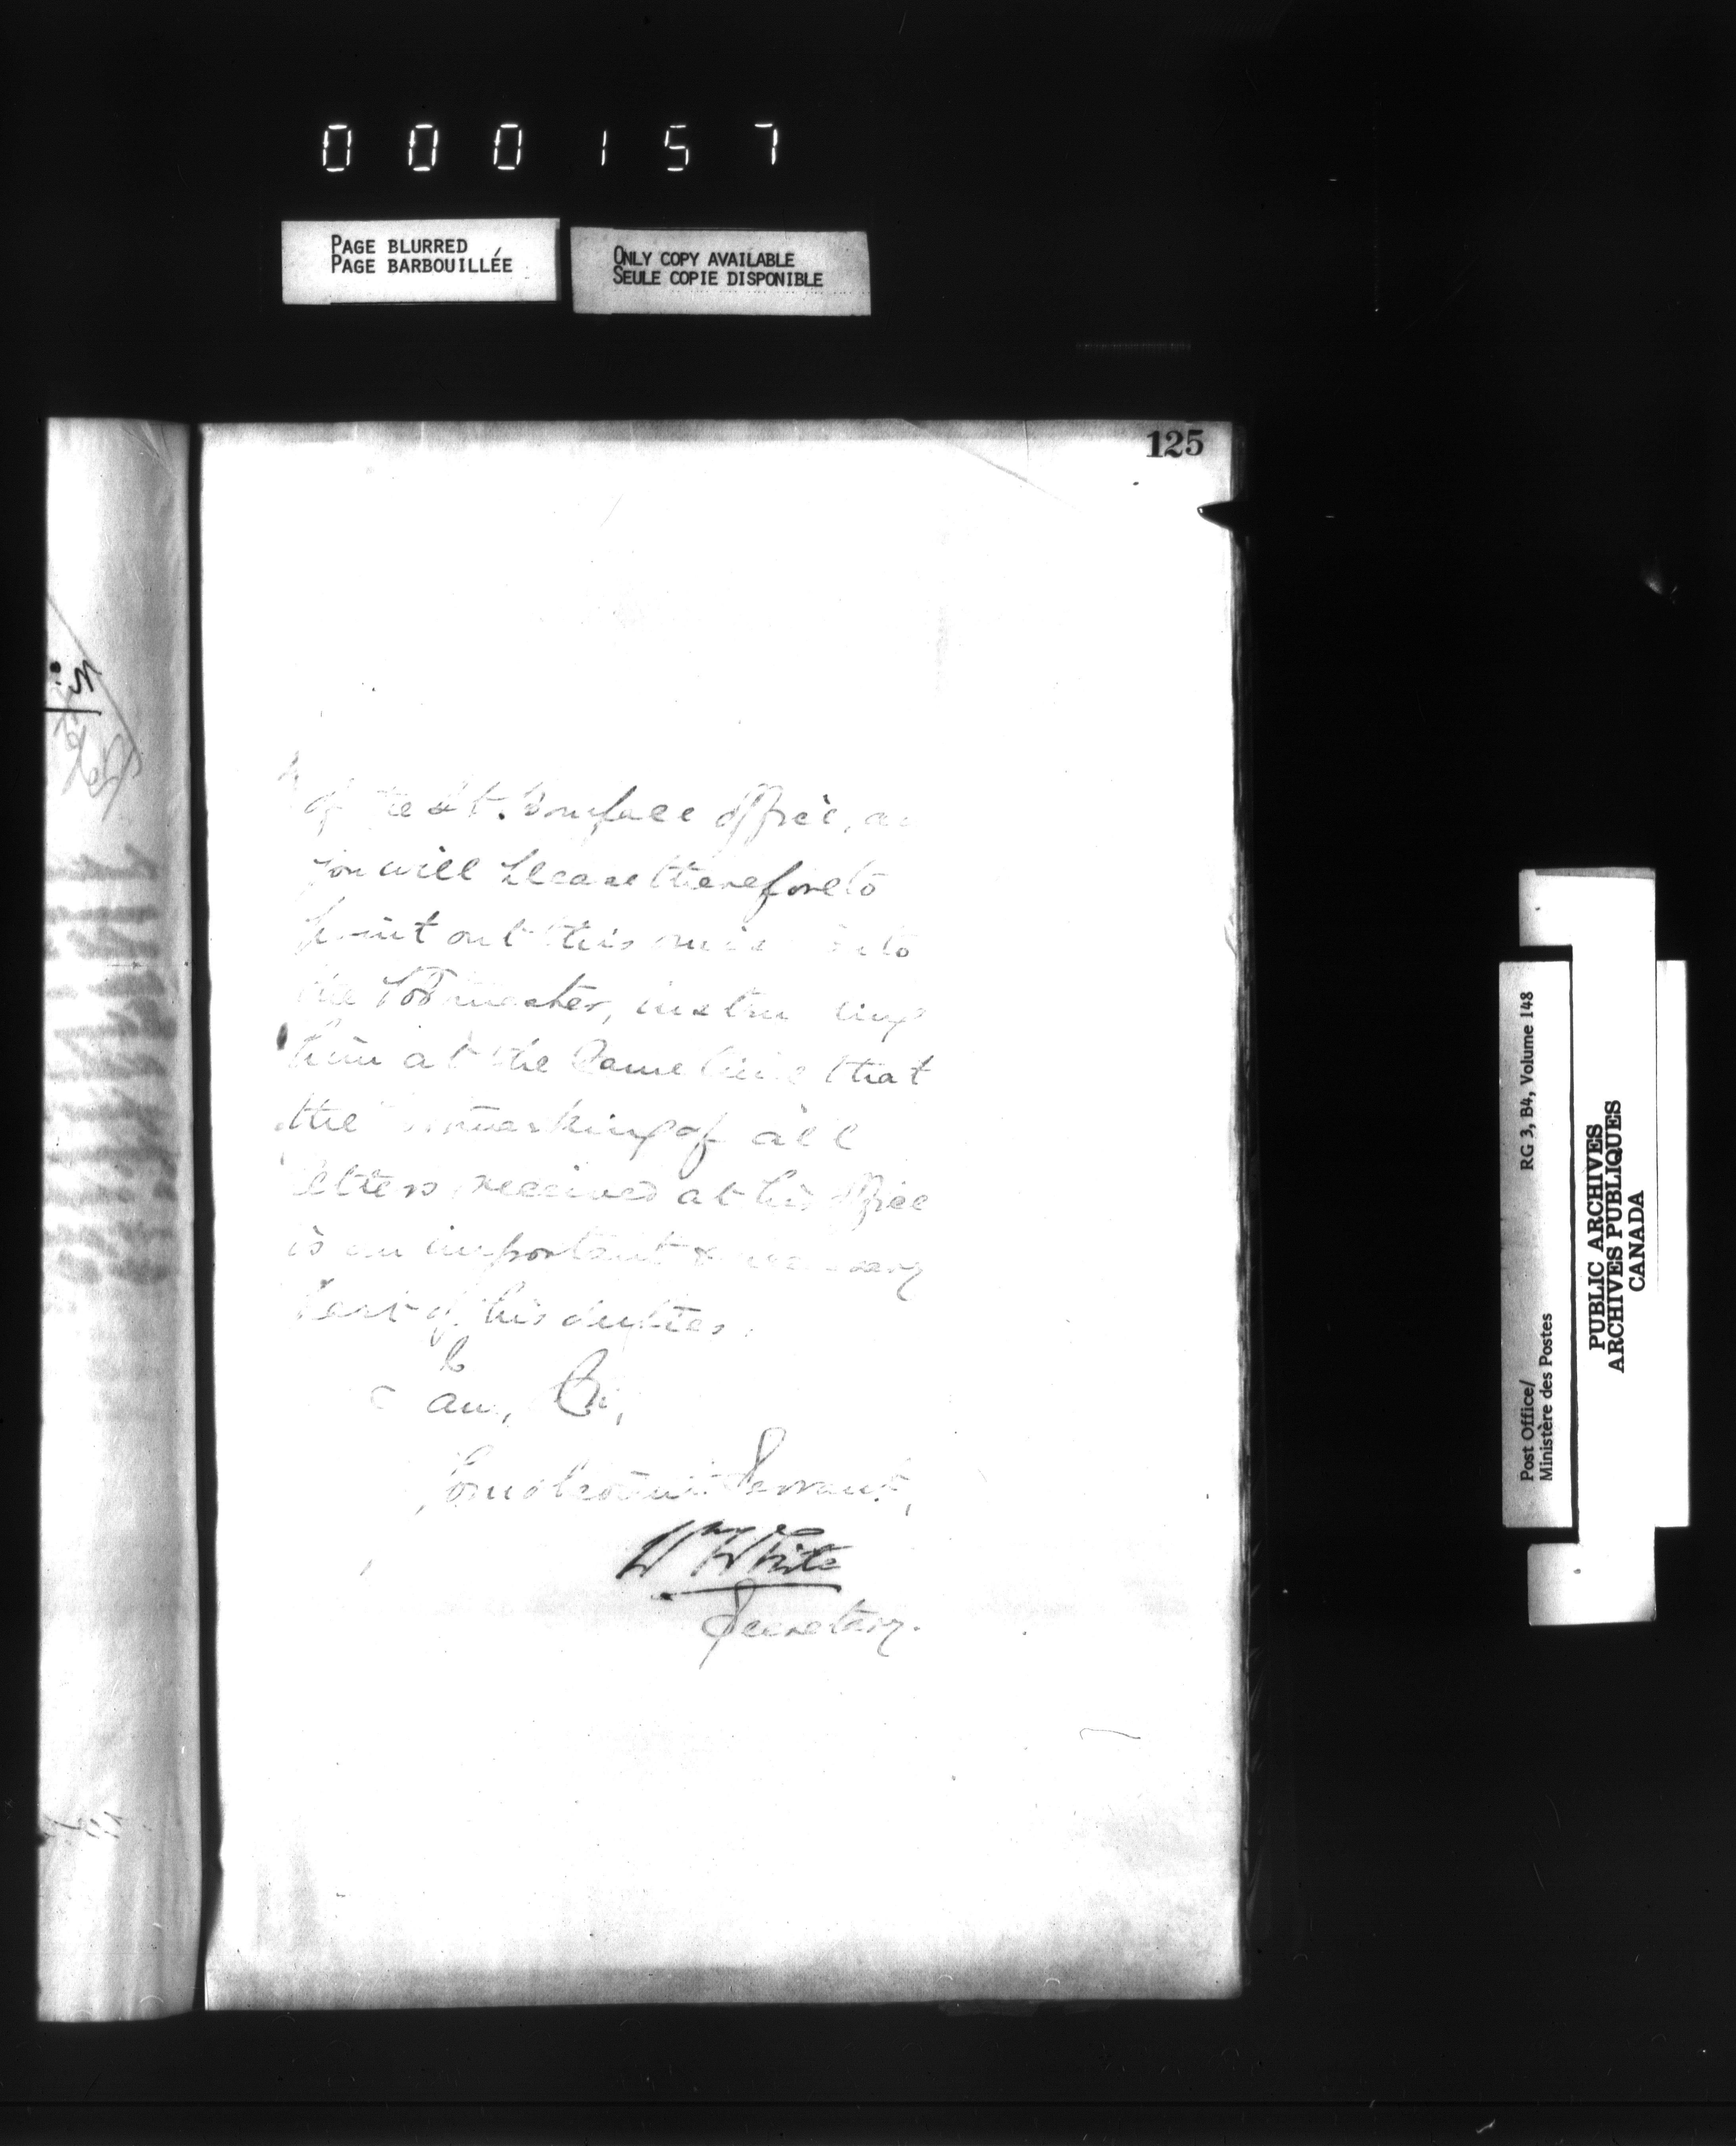 000157
PAGE BLURRED
PAGE BARBOUILLÉE
ONLY COPY AVAILABLE
SEULE COPIE DISPONIBLE
125
of the St. Boniface Office,
you will please therefore to
point out this to
the Postmaster, instructing
him at the same time that
the postmarking of all
letters received at his Office
is an important & necessary
part of his duties.
I am, Sir,
Your obedient Servant,
W White
Secretary.
Post Office/
Ministère des Postes
RG 3, B4, Volume 148
PUBLIC ARCHIVES
ARCHIVES PUBLIQUES
CANADA